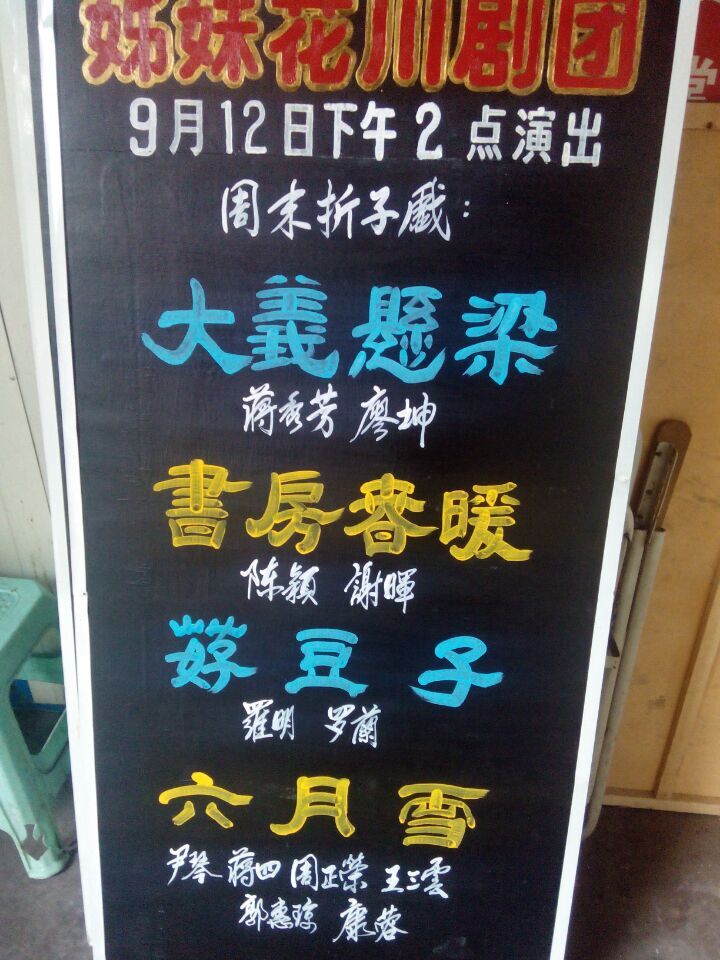 姊妹花川剧团
9月12日下午2点演出
周末折子戲:
大義懸梁
蒋秀芳 廖坤
書房春暖
陈颖 謝暉
豆子
羅明 罗蘭
六月雪
尹琴 蒋四 周正榮 王三雲
郭惠琼 康蓉
堂